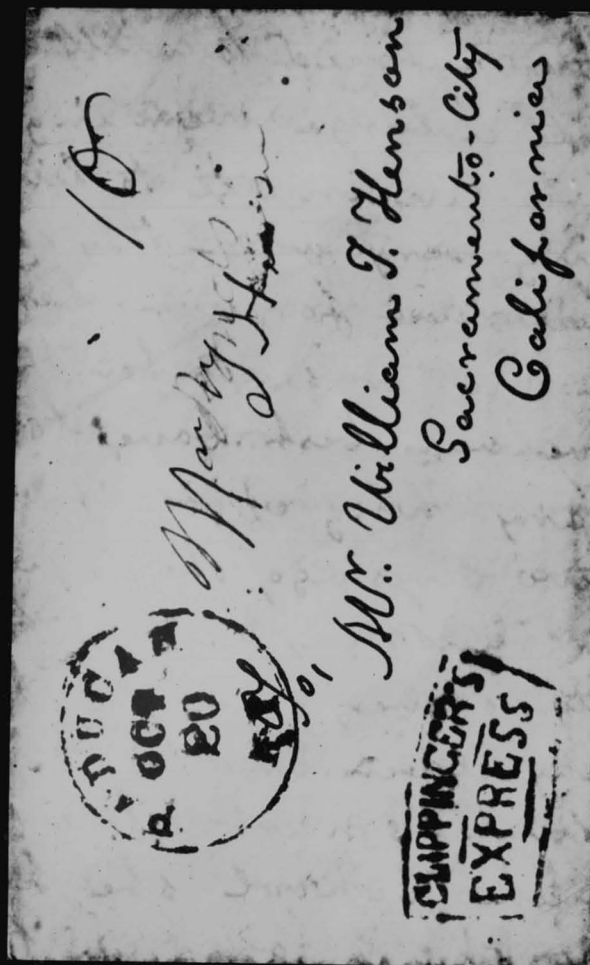 PADUCAH
OCT
20
KY
10
Mr. William T. Henson
Sacramento-City
California
CLIPPINGER'S
EXPRESS